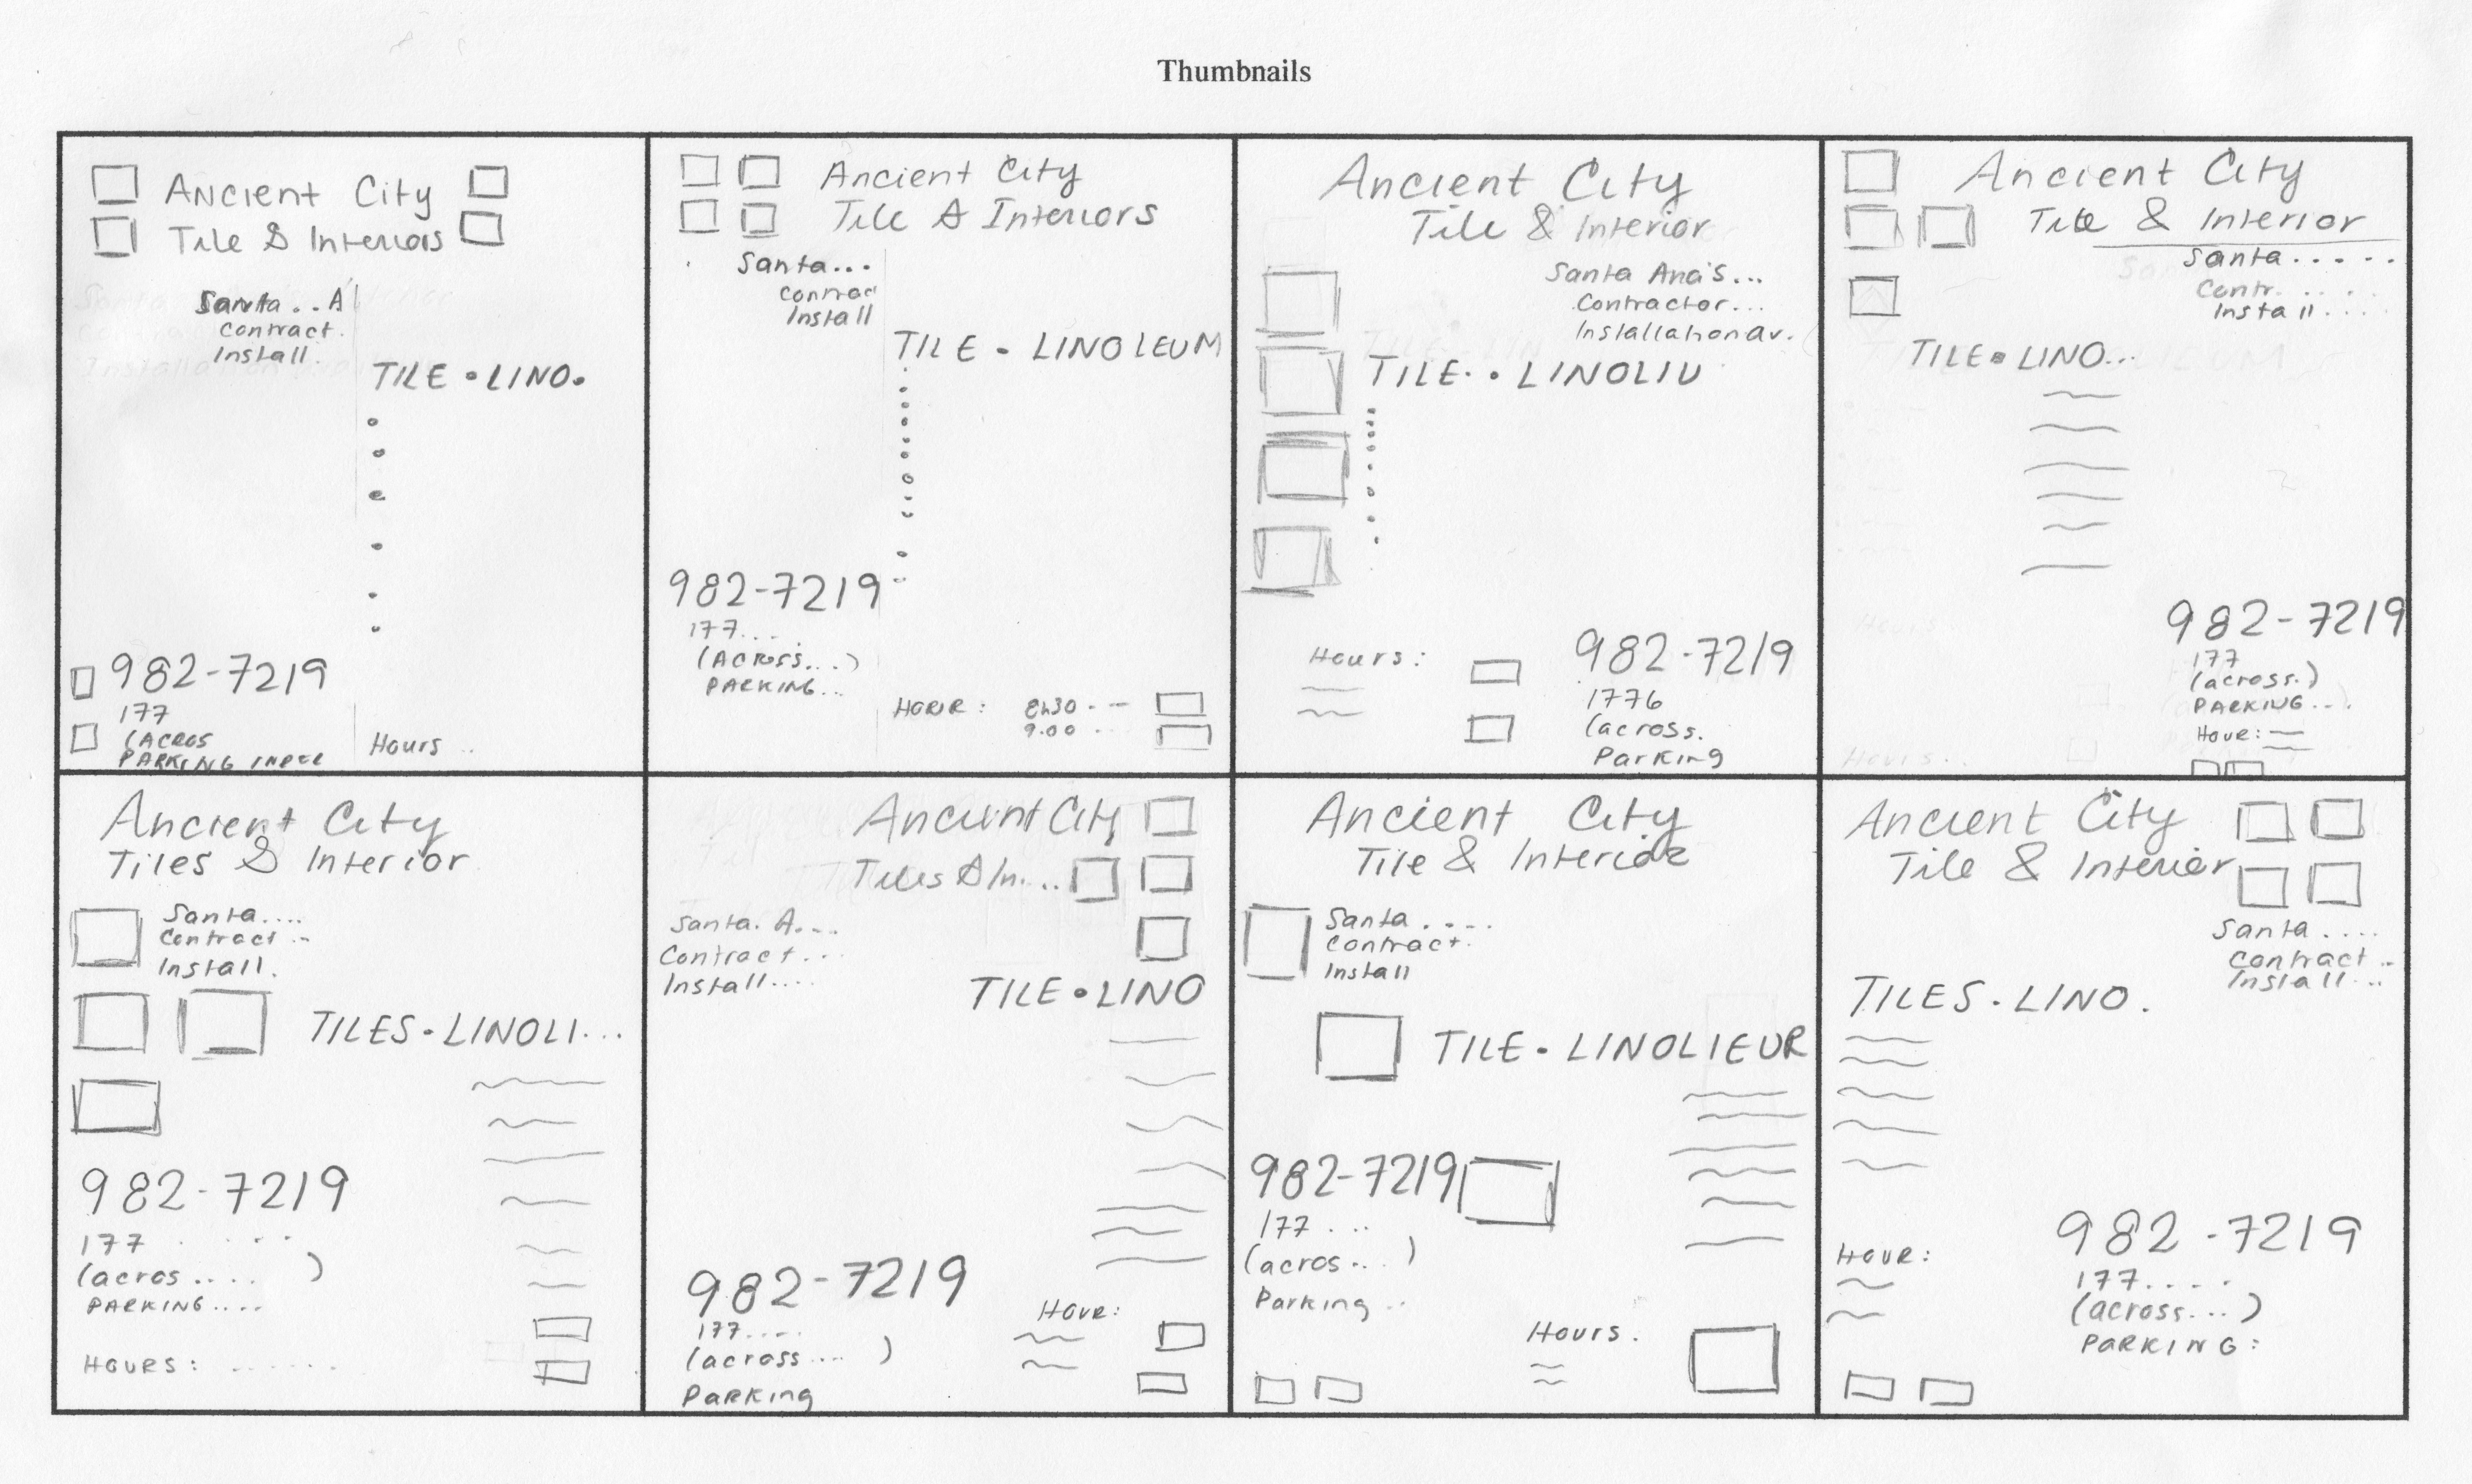 Thumbnails
Ancient City
Tile & Interiors
Santa .. A
Contract.
Install.
TILE • LINO.
982-7219
177
(ACROS
PARKING
Hours ..
Ancient City
Tile & Interiors
Santa...
Contrac
Install
TILE - LINOLEUM
982-7219
177....
(Across...)
PARKING...
HOUR: 8h30 - -
9.00 ...
Ancient City
Tile & Interior
Santa Ana's...
Contractor...
Installation av.
TILE. • LINOLIU
Hours:
982-7219
1776
(across.
Parking
Ancient City
Tile & Interior
Santa.....
Contr. ...
Install....
TILE • LINO...
982-7219
177
(across.)
PARKING...
Hour:
Ancient City
Tiles & Interior
Santa....
Contract ..
Install.
TILES - LINOLI...
982-7219
177 . ...
(acros .... )
PARKING....
HOURS: ......
Ancient City
Tiles & In...
Santa. A...
Contract...
Install....
TILE • LINO
982-7219
177....
(across ... )
Parking
HOUR:
Ancient City
Tile & Interior
Santa ....
Contract.
Install
TILE - LINOLIEUR
982-7219
177 ...
(acros... )
Parking ..
Hours.
Ancient City
Tile & Interior
Santa ....
Contract ..
Install...
TILES - LINO.
982-7219
177.....
(across...)
PARKING:
HOUR: